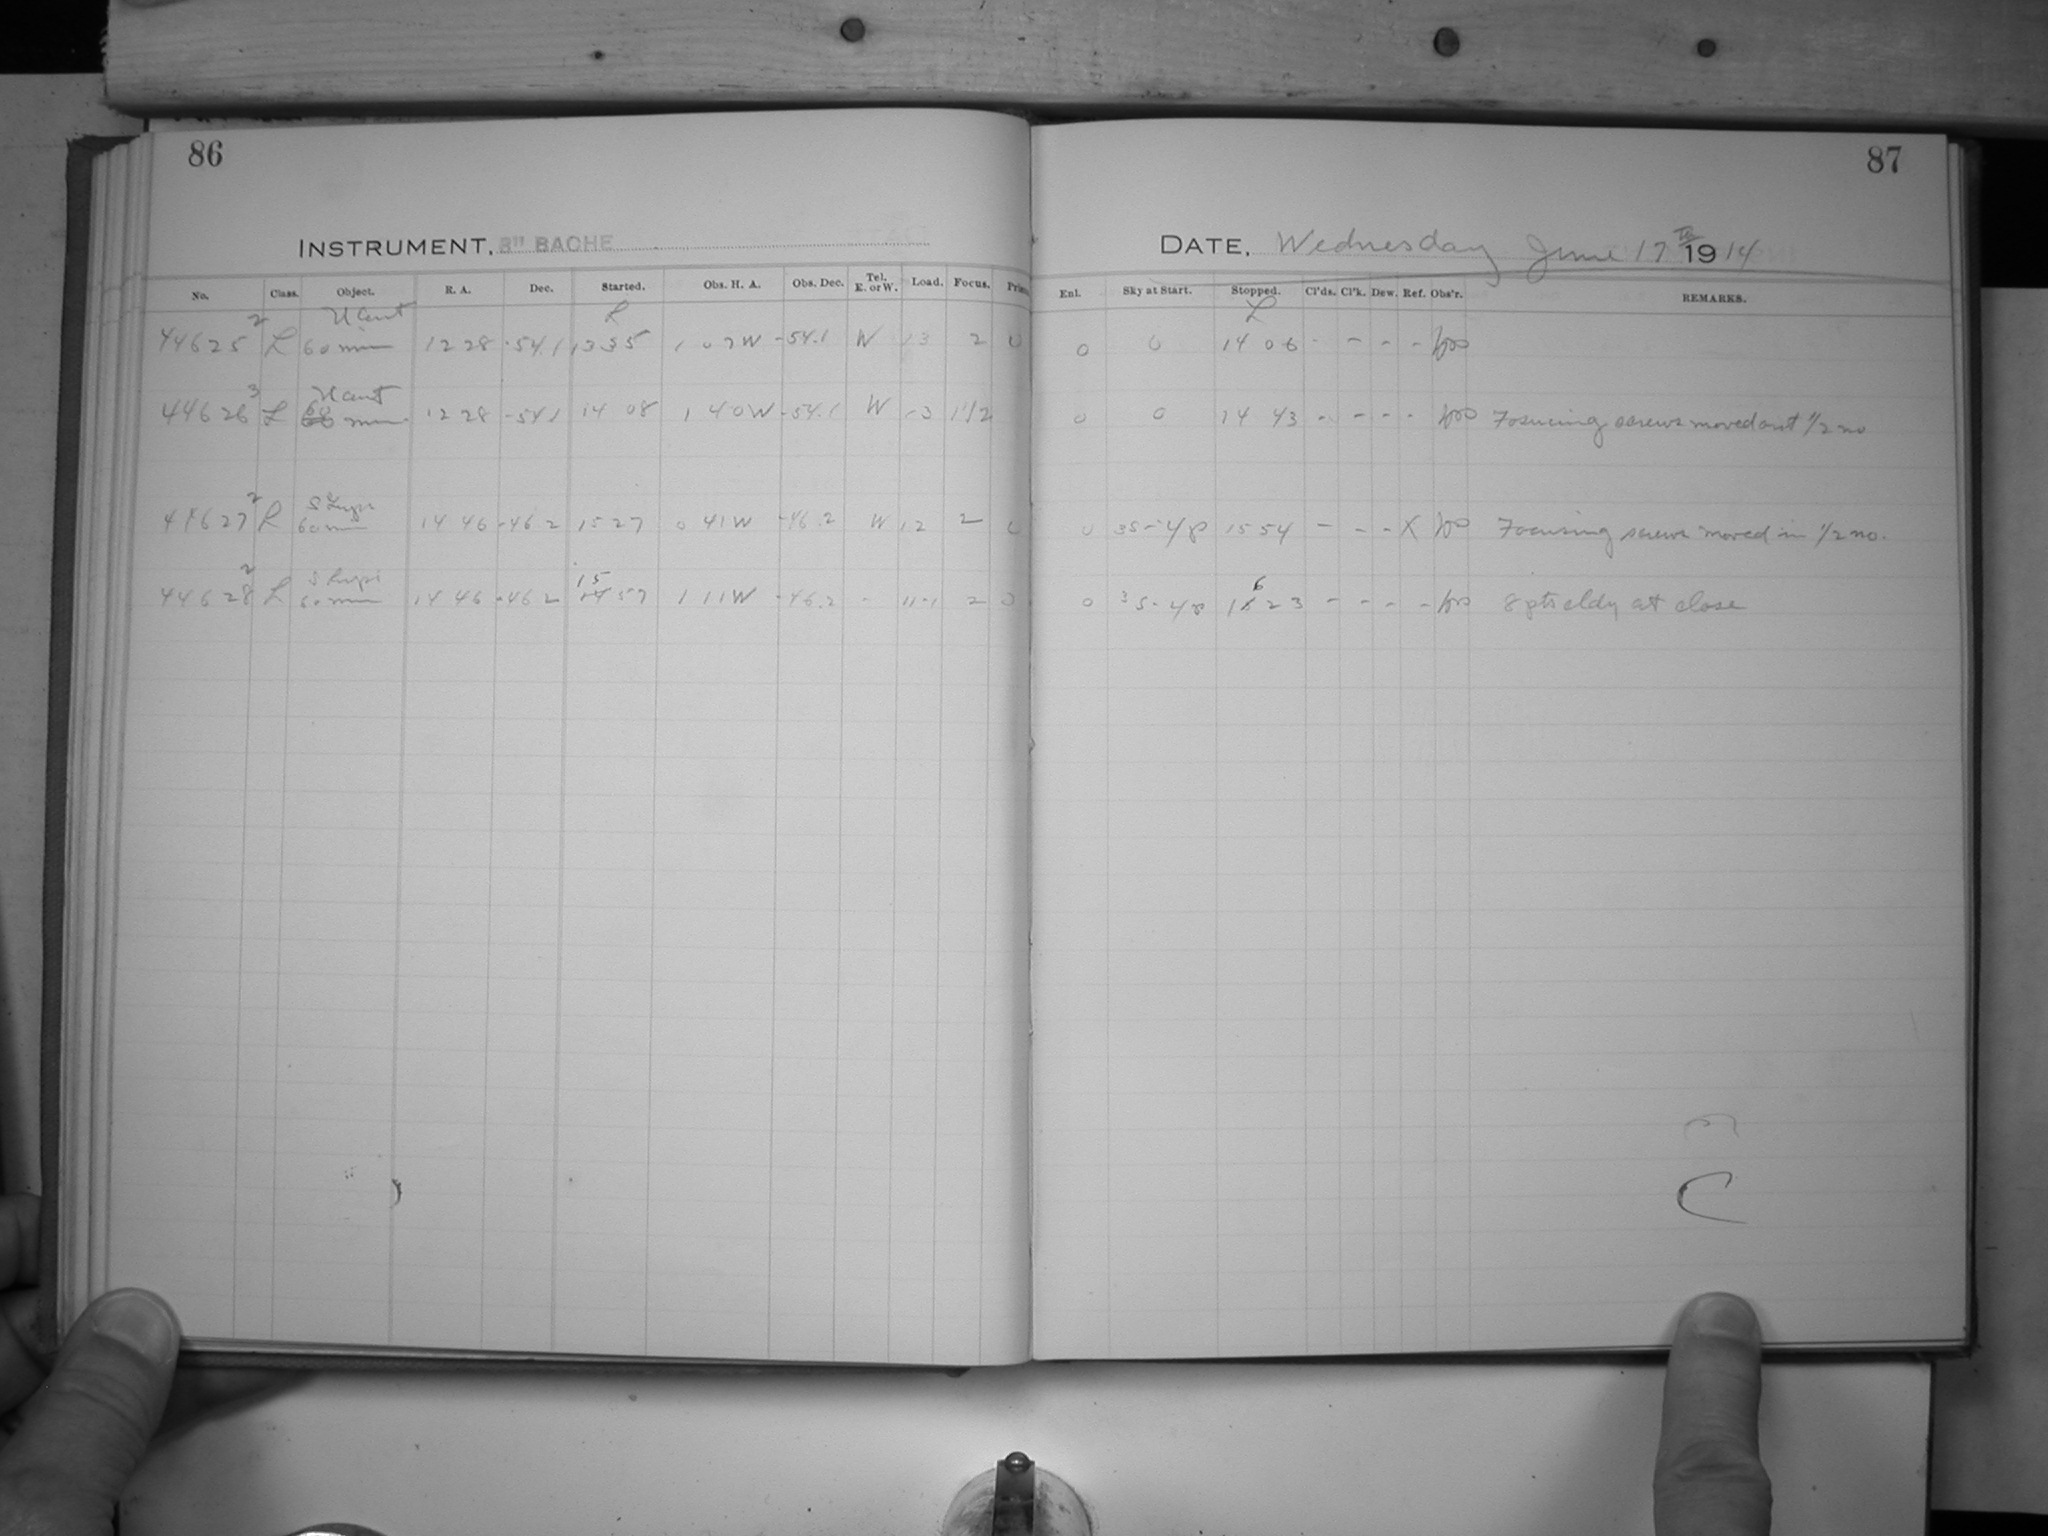 86
87
INSTRUMENT, 8" BACHE
DATE, Wednesday June 17th 1914
No. Class. Object. R. A. Dec. Started. Obs. H. A. Obs. Dec. Tel. E. or W. Load. Focus. Prism
Enl. Sky at Start. Stopped. Cl'ds. Cl'k. Dew. Ref. Obs'r. REMARKS.
44625 2 L 60 min 12 28 -54.1 13 35 1 07 W -54.1 W 13 2 0
0 0 14 06 - - - -
44626 3 L min 12 28 -54.1 14 08 1 40 W -54.1 W 13 1 1/2
0 0 14 43 - - - - Focucing screws moved out 1/2 no
44627 2 L S Lupi 60 min 14 46 -46 2 15 27 0 41 W -46.2 W 12 2 0
0 35-48 15 54 - - - X Focusing screws moved in 1/2 no.
44628 2 L S Lupi 60 min 14 46 -46 2 15 57 1 11 W -46.2 - 11-1 2 0
0 35-48 16 23 - - - - 8 pts cldy at close
C